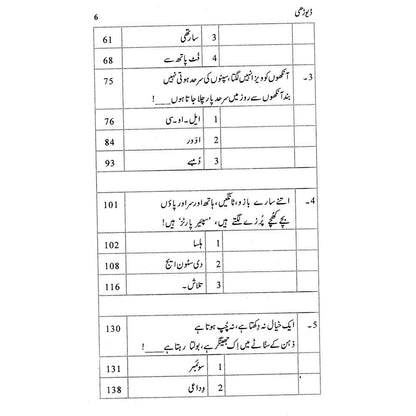 ڈیوڑھی 6
3 سارتھی 61
4 فُٹ پاتھ سے 68
3۔ آنکھوں کو ویزا نہیں لگتا، سپنوں کی سرحد ہوتی نہیں 75
بند آنکھوں سے روز میں سرحد پار چلا جاتا ہوں ____!
1 ایل۔او۔سی 76
2 اوور 84
3 دُمبے 93
4۔ اتنے سارے بازو، ٹانگیں، ہاتھ اور سر اور پاؤں 101
بچے کھُچے پُرزے لگتے ہیں، 'سپئیر پارٹز' ہیں!
1 ہلسا 102
2 دی سٹون ایج 108
3 تلاش۔ 116
5۔ ایک خیال نہ دِکھتا ہے، نہ چُپ ہوتا ہے 130
ذہن کے سنّاٹے میں اِک جھینگر ہے، بولتا رہتا ہے____!
1 سوئمبر 131
2 وداعی 138